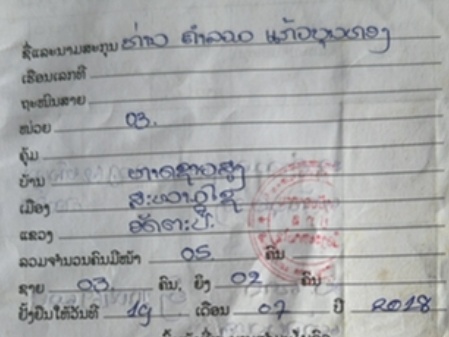 ຊື່ແລະນາມສະກຸນ ທ່ານ ຄຳລວດ ແກ້ວບຸນທອງ
ເຮືອນເລກທີ
ຖະໜົນສາຍ
ໜ່ວຍ 03.
ຄຸ້ມ
ບ້ານ ຫາດຊາຍສູງ
ເມືອງ ສະໜາມໄຊ
ແຂວງ ອັດຕະປື.
ລວມຈຳນວນຄົນມີໜ້າ 05 ຄົນ
ຊາຍ 03. ຄົນ, ຍິງ 02 ຄົນ
ຢັ້ງຢືນໃຫ້ວັນທີ 19 ເດືອນ 07 ປີ 2018